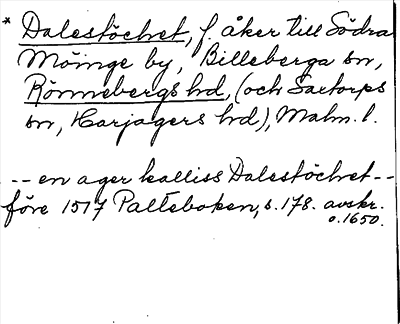 * Dalestöchet, f. åker till Södra
Möinge by, Billeberga sn,
Rönnebergs hd, (och Saxtorps
sn, Harjagers hd), Malm. l.
-- en ager kalliss Dalestöchet --
före 1517 Palteboken, s. 178. avskr.
o. 1650.